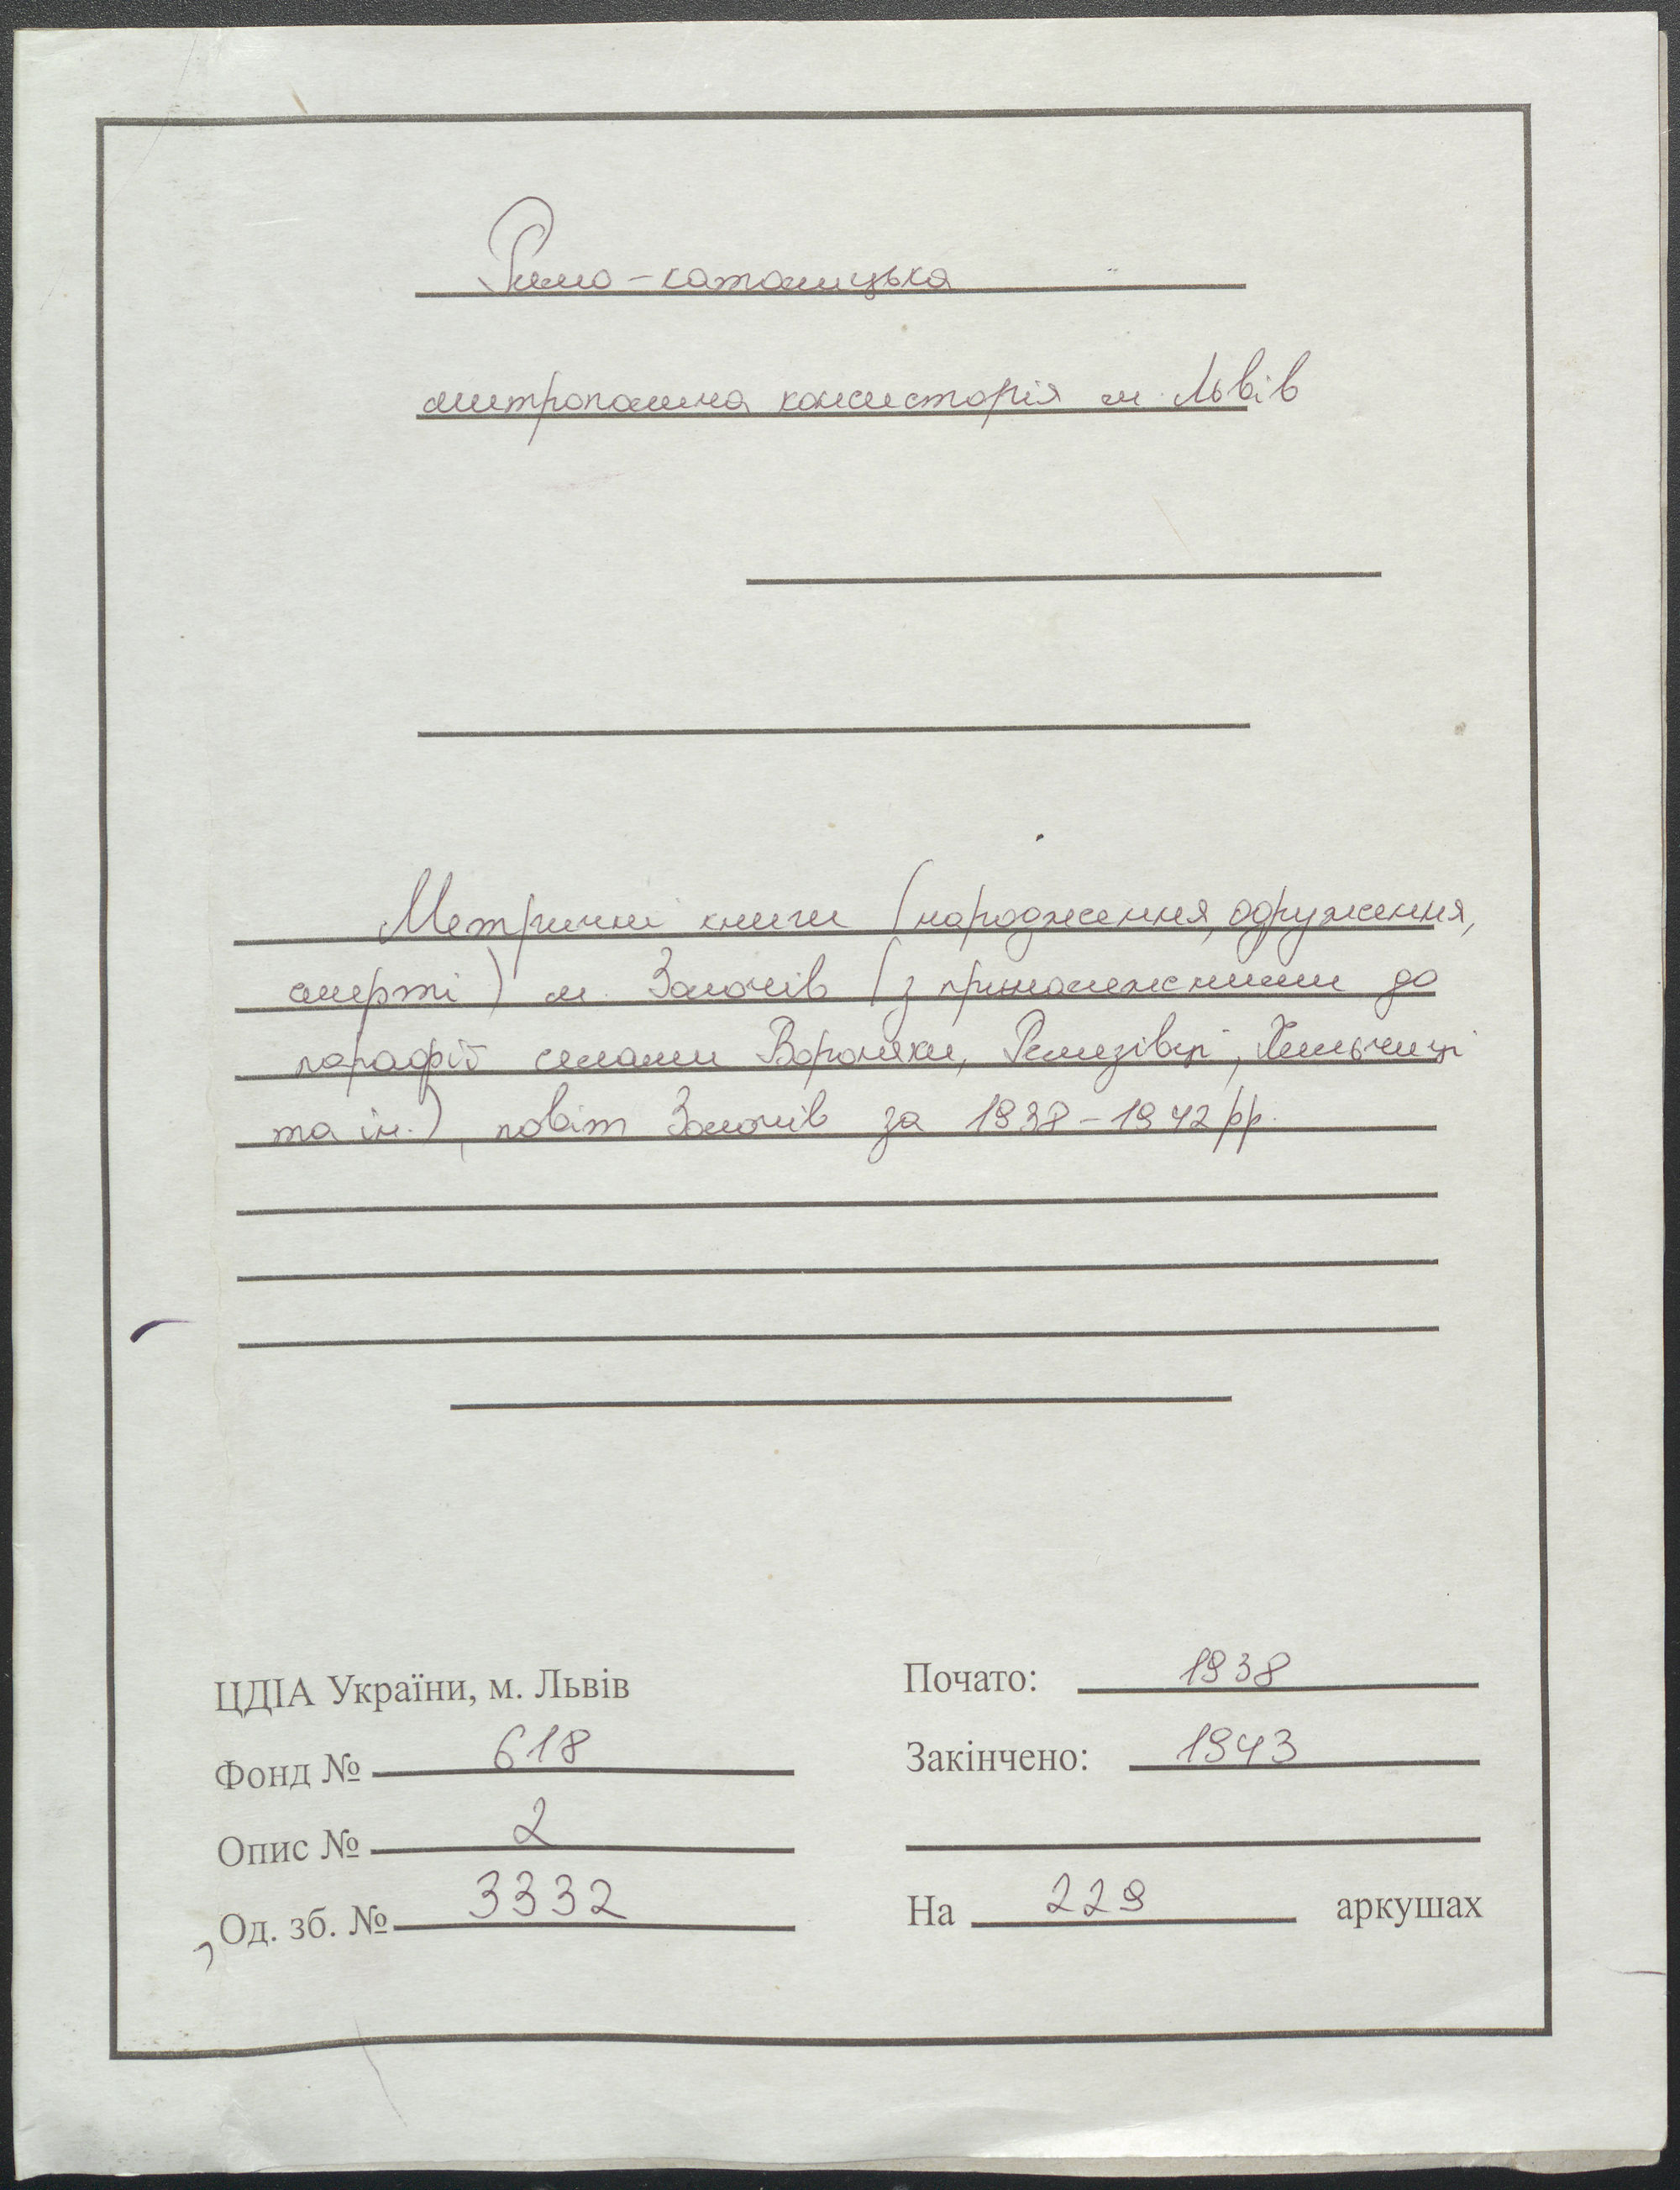 Римо-католицька
митрополича консисторія м. Львів
Метричні книги (народження, одруження,
смерті) м. Золочів (з приналежними до
парафії селами Вороняки, Ремизівці, Хильчиці
та ін.), повіт Золочів за 1938-1942 рр.
ЦДІА України, м. Львів
Фонд № 618
Опис № 2
Од. зб. № 3332
Почато: 1938
Закінчено: 1943
На 229 аркушах